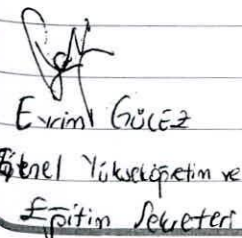 Evrim GÜLEZ
Genel Yükseköğretim ve
Eğitim Sekreteri